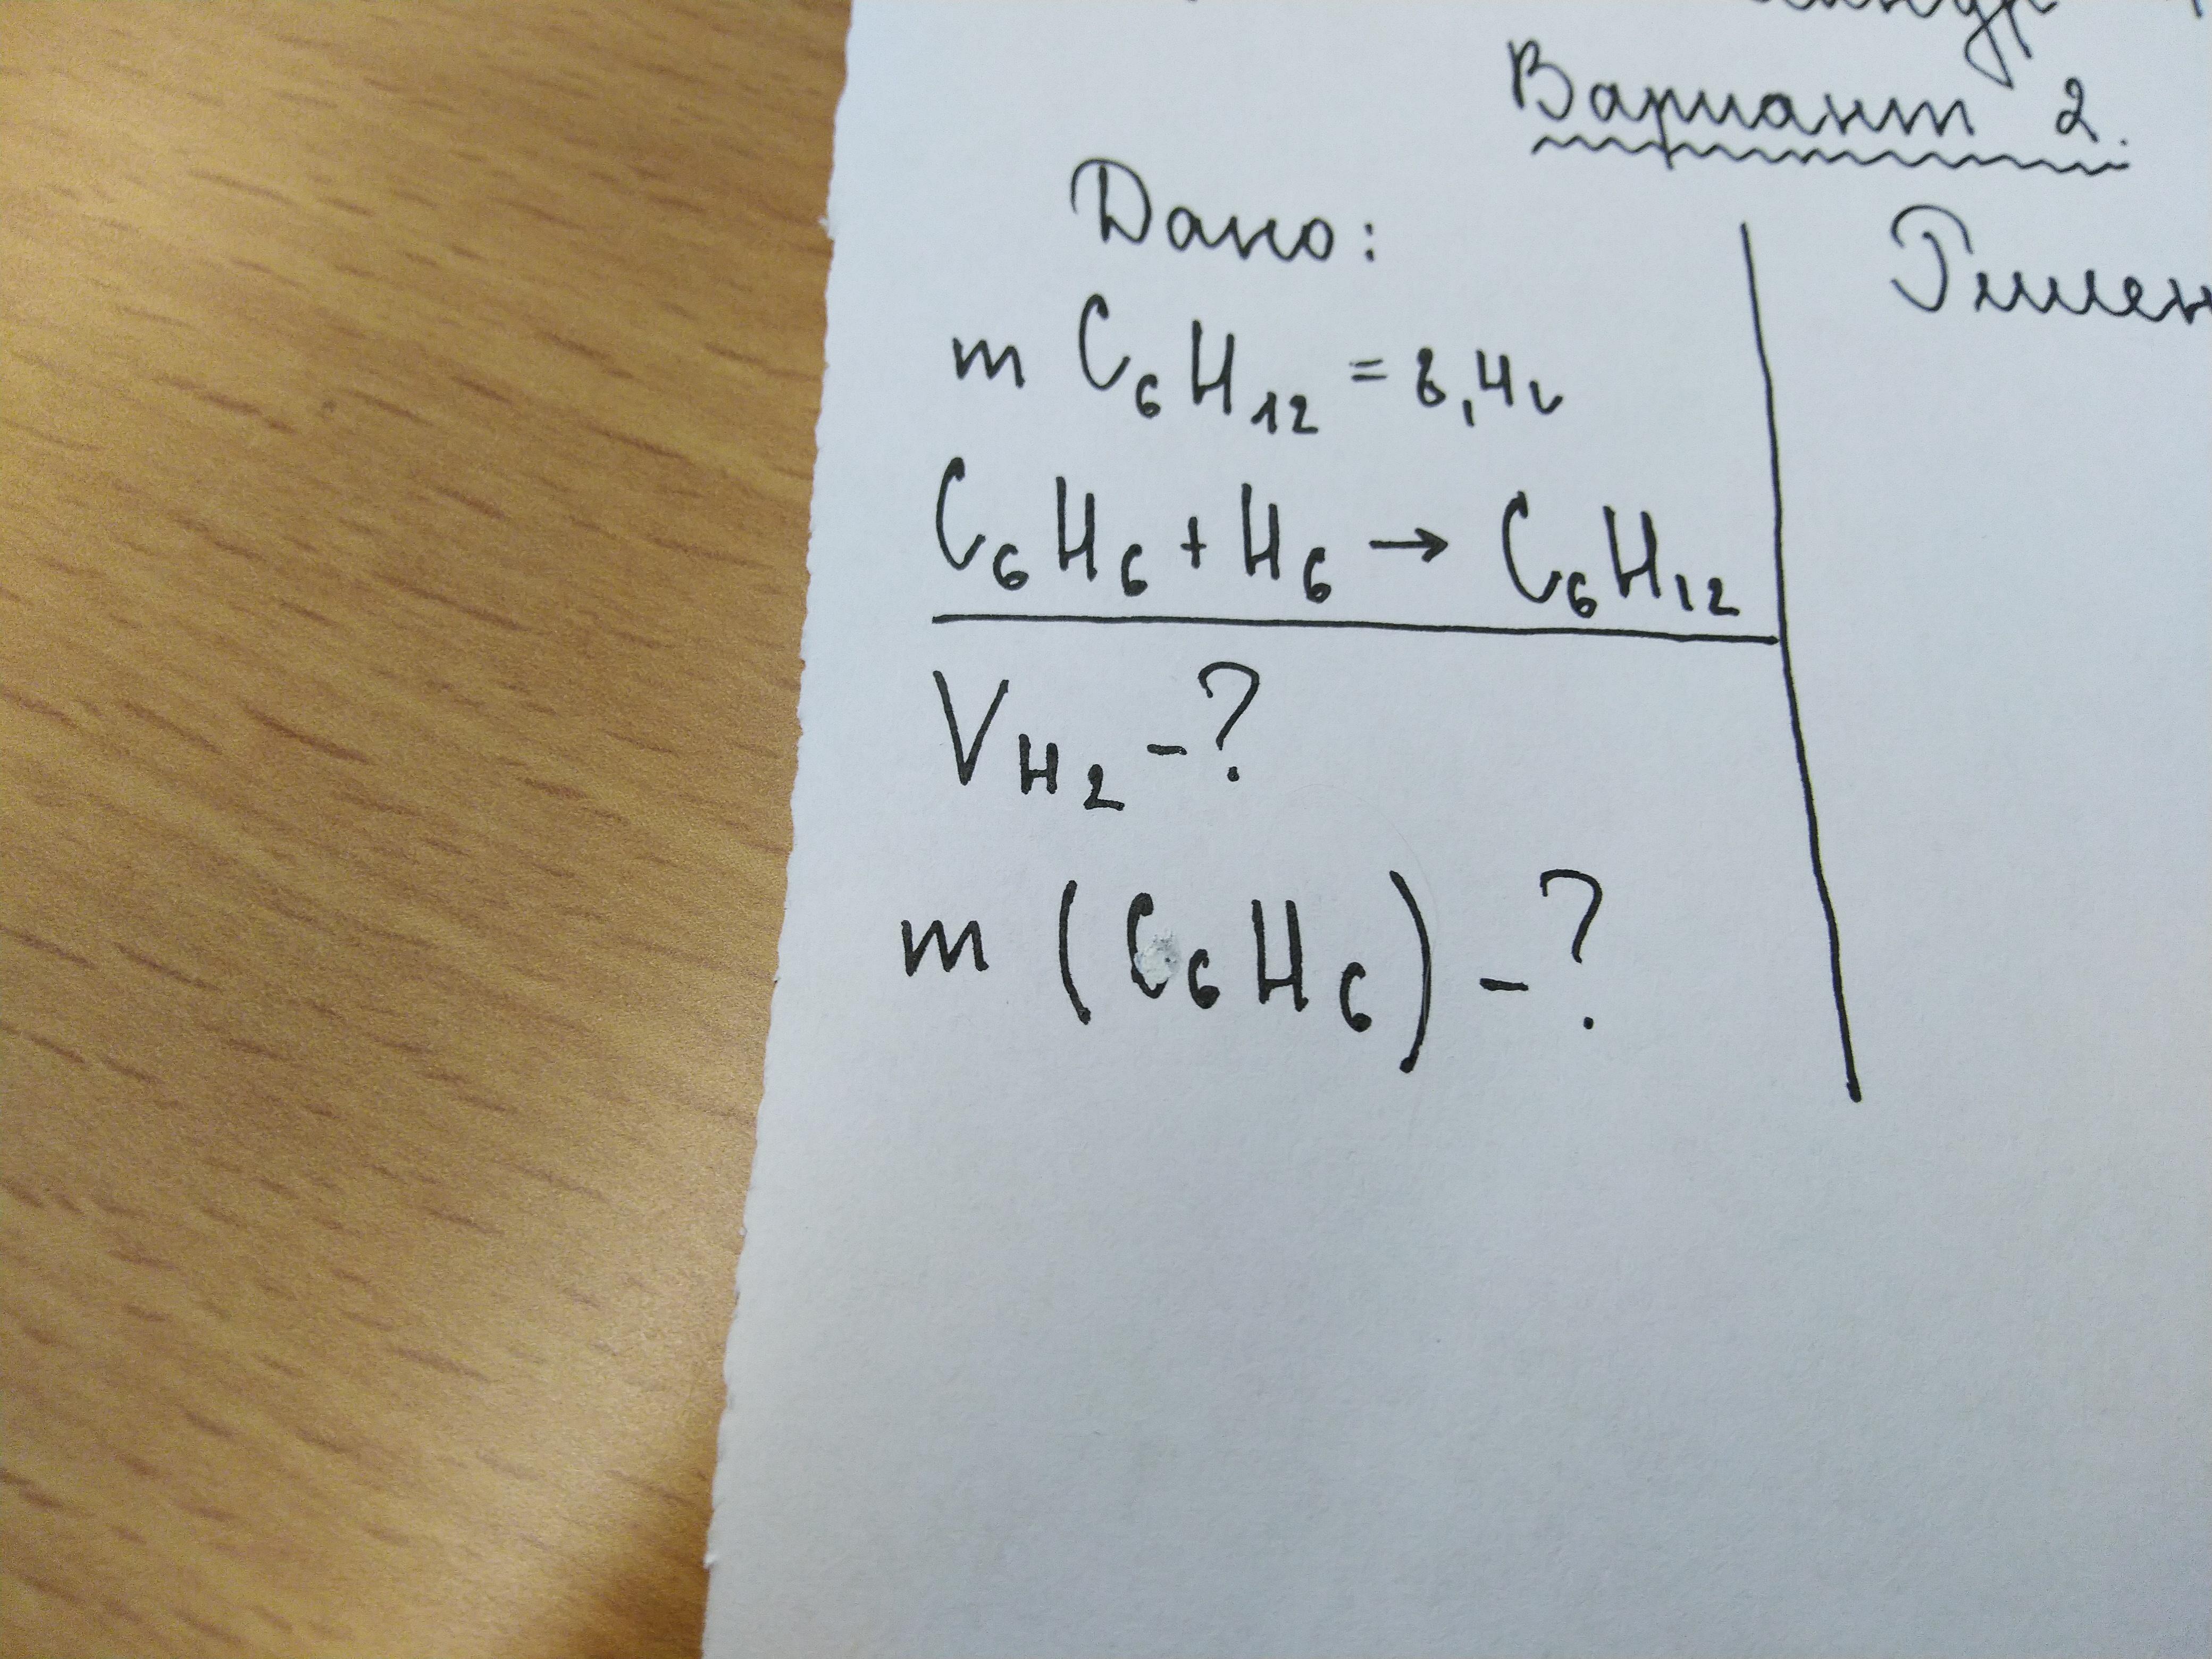 Вариант 2.
Дано:
m C₆H₁₂ = 8,4г
C₆H₆ + H₆ → C₆H₁₂
V H₂ - ?
m (C₆H₆) - ?